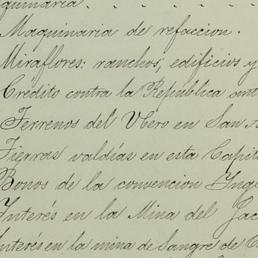 quinaria . . . . . .
Maquinaria de refaccion.
Miraflores: ranchos, edificios y
Crédito contra la República ant
Terrenos del Ubero en San A
Tierras valdías en esta Capit
Bonos de la convencion Ingl
Interés en la Mina del Jac
Interés en la mina de Sangre de C